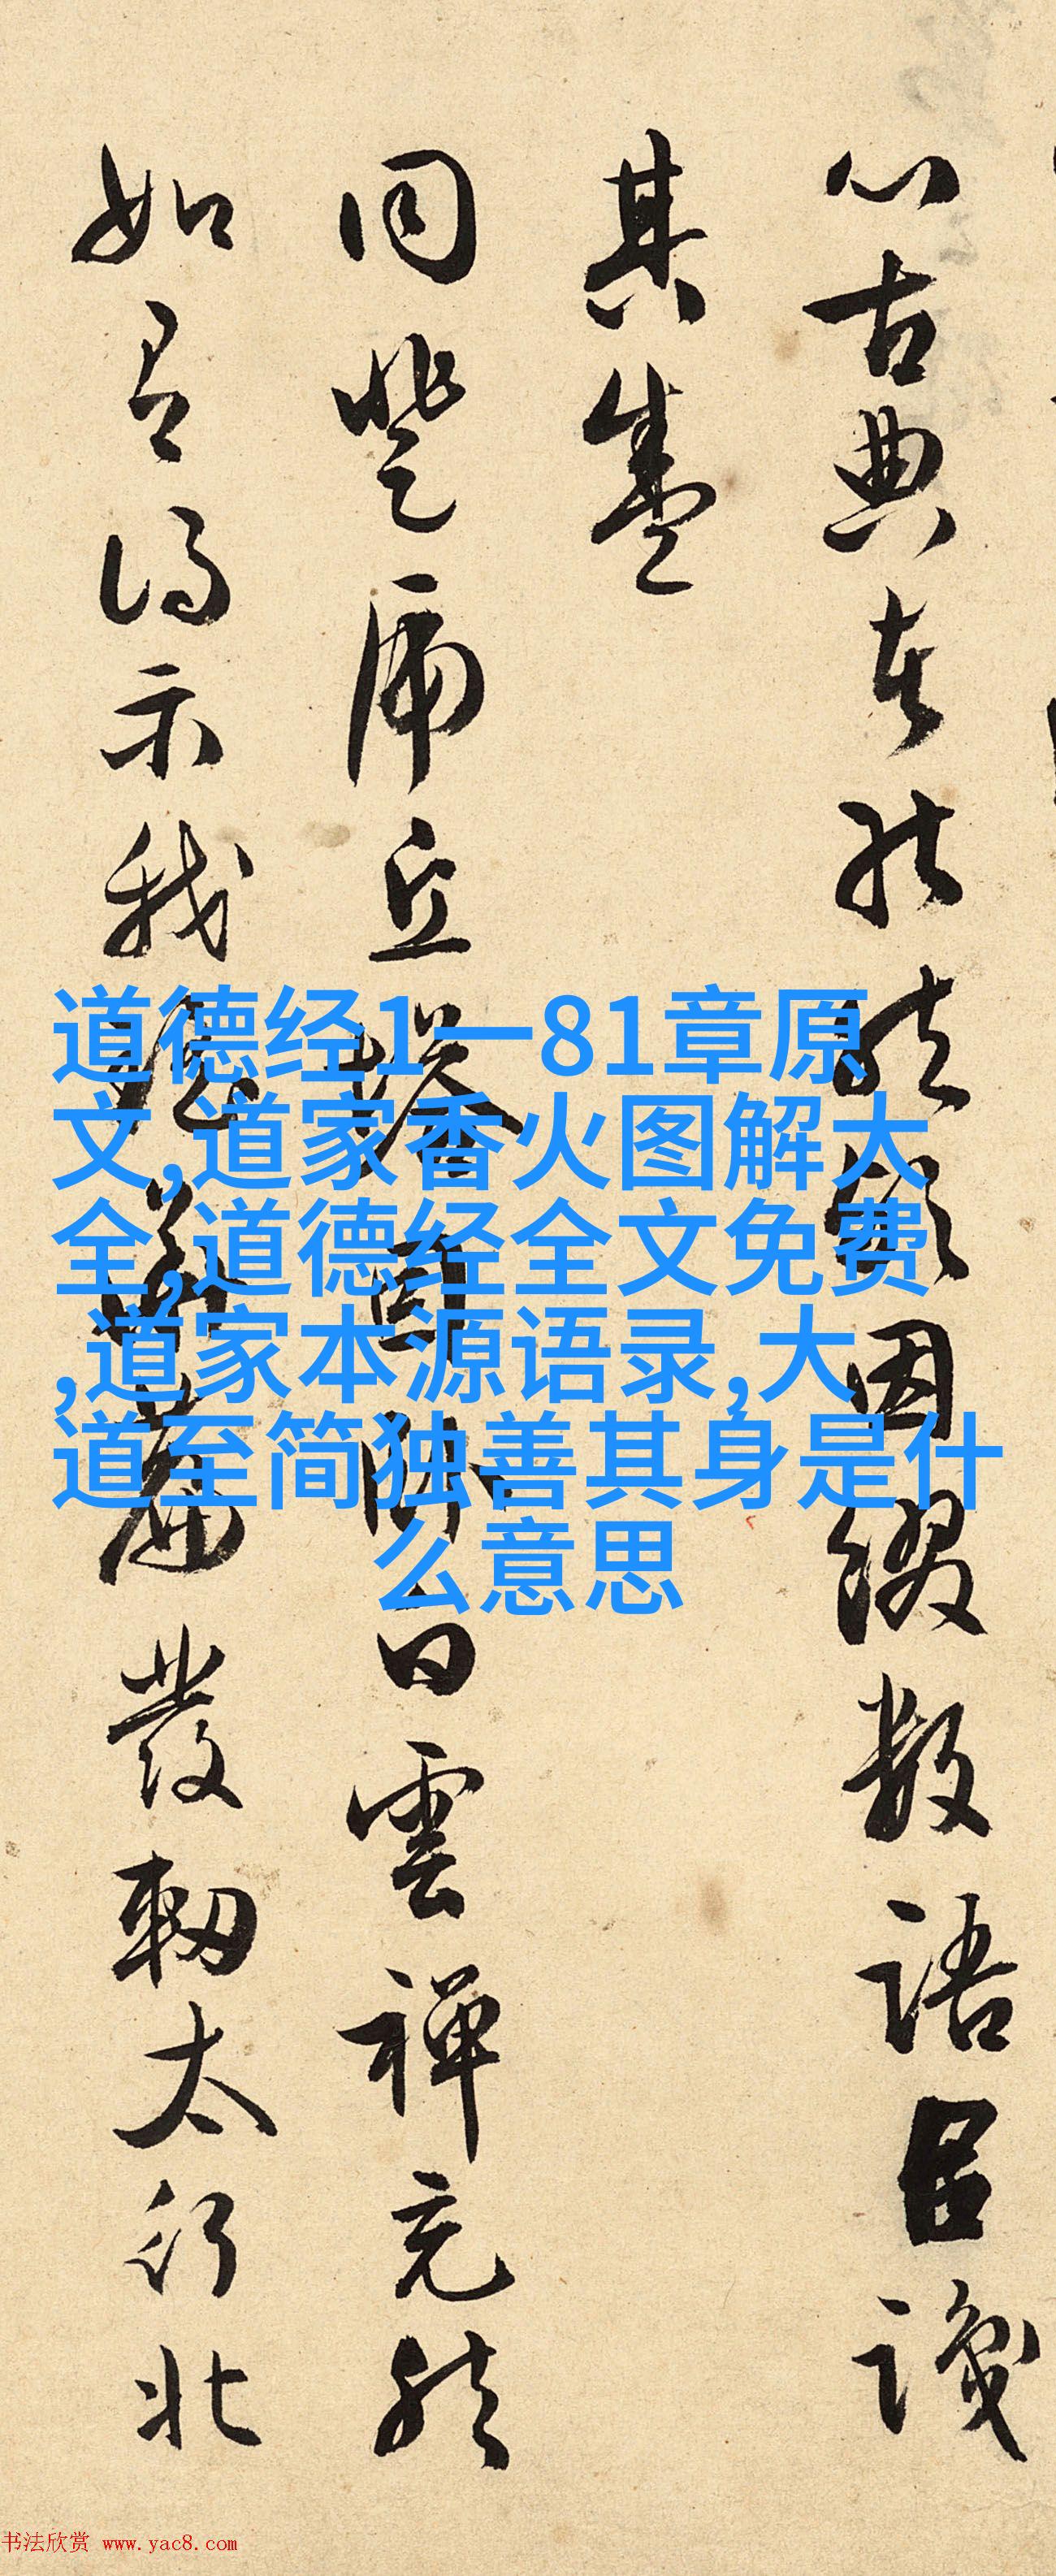 古典
因綴數語
其盛
同登虎丘塔
雲禪
然
如
得示我
發軔太行北
道德经1一81章原
文,道家香火图解大
全,道德经全文免费
,道家本源语录,大
道至简独善其身是什
么意思
书法欣赏 www.yac8.com